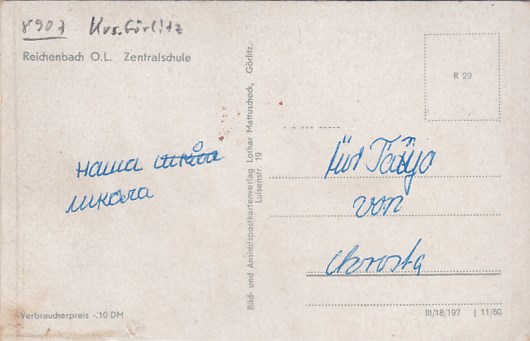 8907 Krs. Görlitz
Reichenbach O.L. Zentralschule
R 29
Bild- und Ansichtspostkartenverlag Lothar Mattuscheck, Görlitz.
Luisenstr 19
наша школа
школа
für
von
Verbraucherpreis -.10 DM
III/18/197 J 11/60